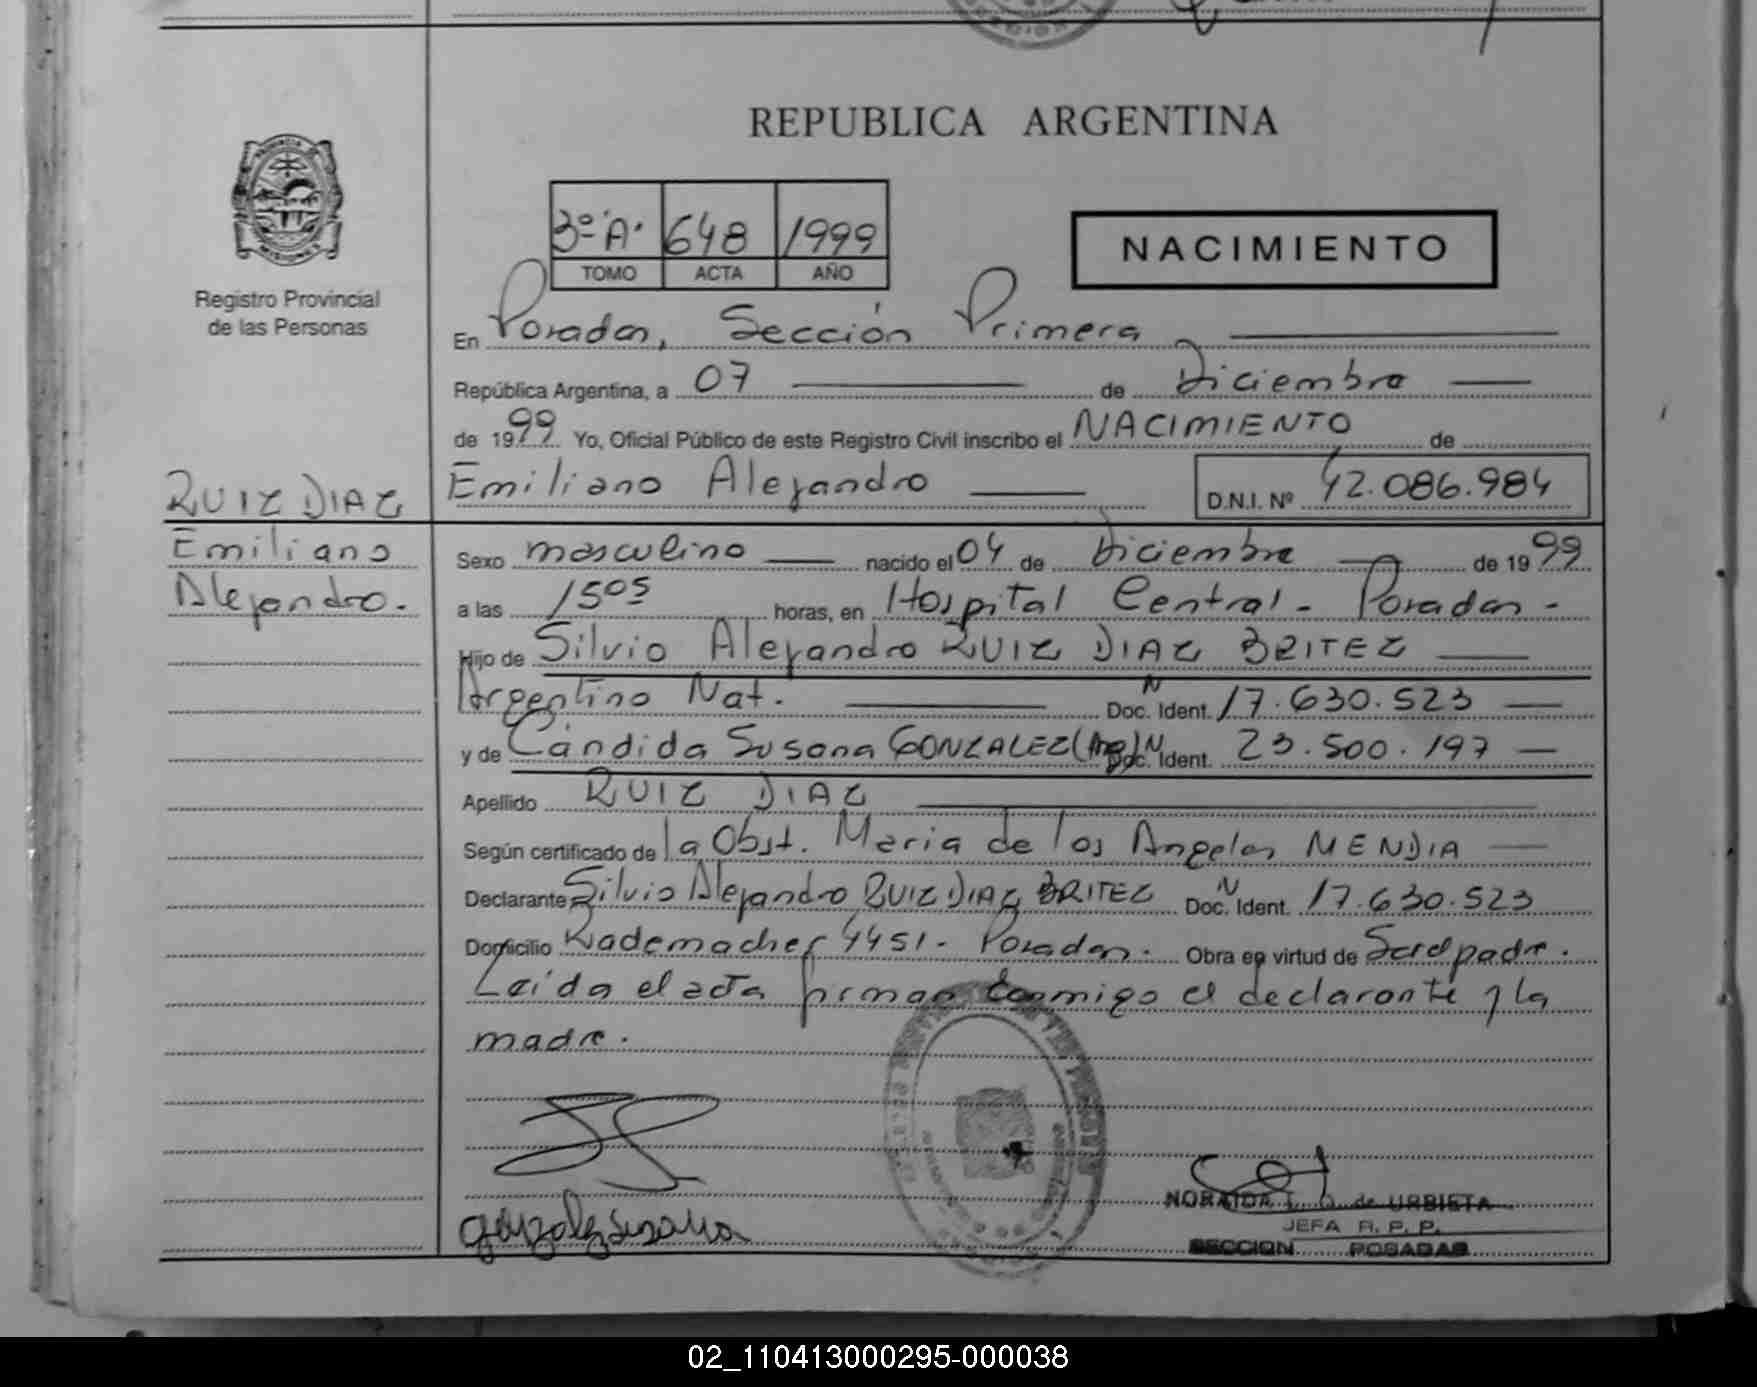 REPUBLICA ARGENTINA
3º "A" 648 1999
TOMO ACTA AÑO
NACIMIENTO
Registro Provincial
de las Personas
En Posadas, Sección Primera
República Argentina, a 07 de Diciembre
de 1999 Yo, Oficial Público de este Registro Civil inscribo el NACIMIENTO de
Emiliano Alejandro D.N.I. Nº 42.086.984
RUIZ DIAZ
Emiliano
Alejandro.
Sexo masculino nacido el 04 de Diciembre de 1999
a las 15 05 horas, en Hospital Central - Posadas -
Hijo de Silvio Alejandro RUIZ DIAZ BRITEZ
Argentino Nat. Doc. Ident. N 17.630.523
y de Cándida Susana GONZALEZ (Arg) Doc. Ident. N 23.500.197
Apellido RUIZ DIAZ
Según certificado de la Obst. Maria de los Angeles MENDIA
Declarante Silvio Alejandro RUIZ DIAZ BRITEZ Doc. Ident. N 17.630.523
Domicilio Rademacher 4451 - Posadas. Obra en virtud de Ser el padre.
Leída el acta firman conmigo el declarante y la
madre.
gonzalez susana
de URBIETA
JEFA R. P. P.
SECCION POSADAS
02_110413000295-000038